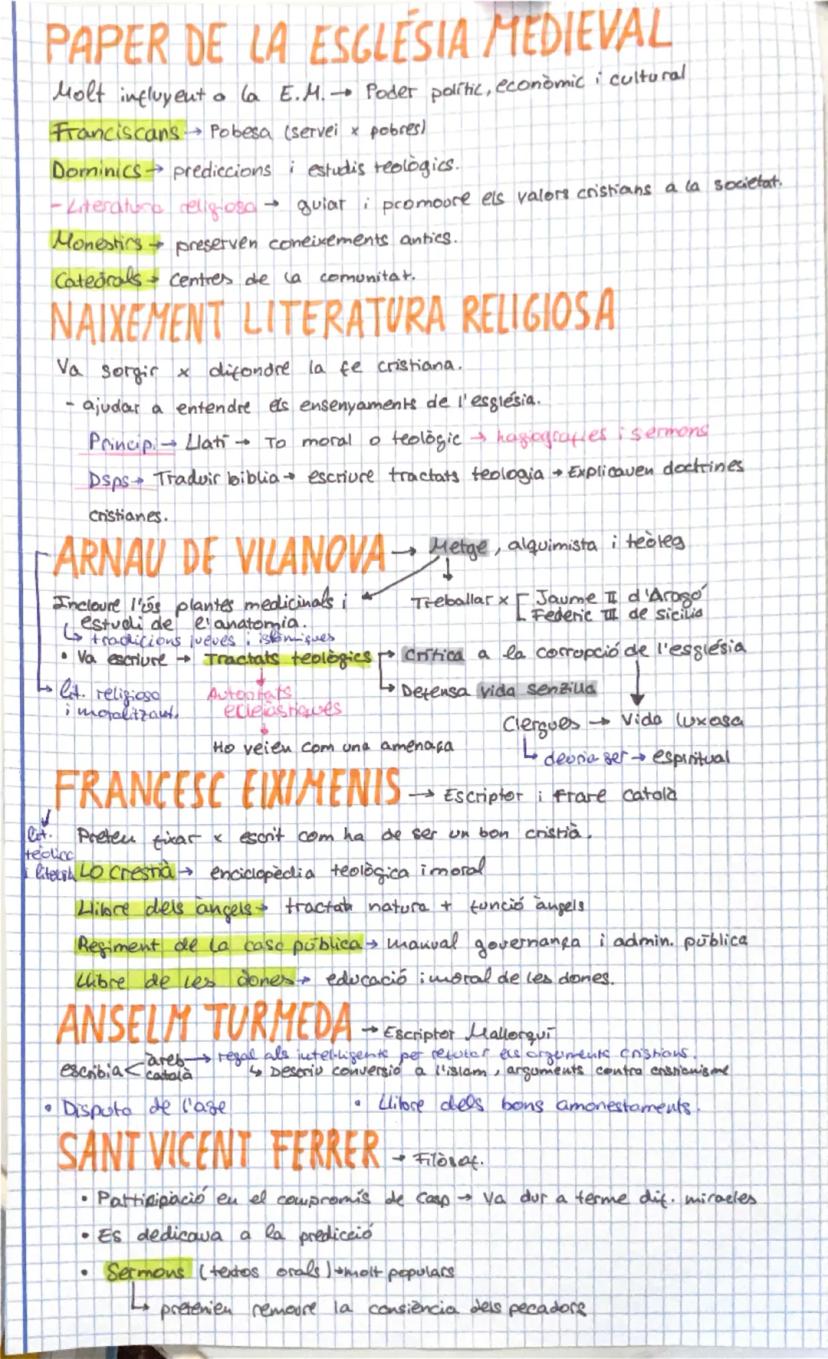 PAPER DE LA ESGLÉSIA MEDIEVAL
Molt influyent a la E.M. → Poder polític, econòmic i cultural
Franciscans → Pobesa (servei x pobres)
Dominics → prediccions i estudis teològics.
- Literatura religiosa → guiar i promoure els valors cristians a la societat.
Monestirs → preserven coneixements antics.
Catedrals → Centres de la comunitat.
NAIXEMENT LITERATURA RELIGIOSA
Va sorgir x difondre la fe cristiana.
- ajudar a entendre els ensenyaments de l'església.
Principi → Llatí → To moral o teològic → hagiografies i sermons
Dsps → Traduir biblia → escriure tractats teologia → Explicaven doctrines
cristianes.
ARNAU DE VILANOVA → Metge, alquimista i teòleg
Incloure l'ús plantes medicinals i
estudi de l'anatomia.
↳ tradicions jueves i islàmiques
Treballar x [ Jaume II d'Aragó
Federic III de sicilia
• Va escriure → Tractats teològics → Crítica a la corrupció de l'església
↳ Defensa vida senzilla
↳ lit. religiosa
i moralitzant.
Autoritats
eclesiàstiques
Ho veien com una amenaça
Clergues → Vida luxosa
↳ deuria ser → espiritual
FRANCESC EIXIMENIS → Escriptor i frare català
lit.
Preten fixar x escrit com ha de ser un bon cristià.
Lo crestià → enciclopèdia teològica i moral
Llibre dels àngels → tractab natura + funció àngels
Regiment de la casc pública → manual governança i admin. pública
Llibre de les dones → educació i moral de les dones.
ANSELM TURMEDA → Escriptor Mallorquí
escribia < àreb → regal als intel·ligents per refutar els arguments cristians.
català ↳ Descriu conversió a l'islam, arguments contra cristianisme
• Disputa de l'ase • Llibre dels bons amonestaments.
SANT VICENT FERRER → Filòsof.
• Participació en el compromís de Casp → Va dur a terme dif. miracles
• Es dedicava a la predicció
• Sermons (textos orals) → molt populars
↳ pretenien remoure la consiència dels pecadors